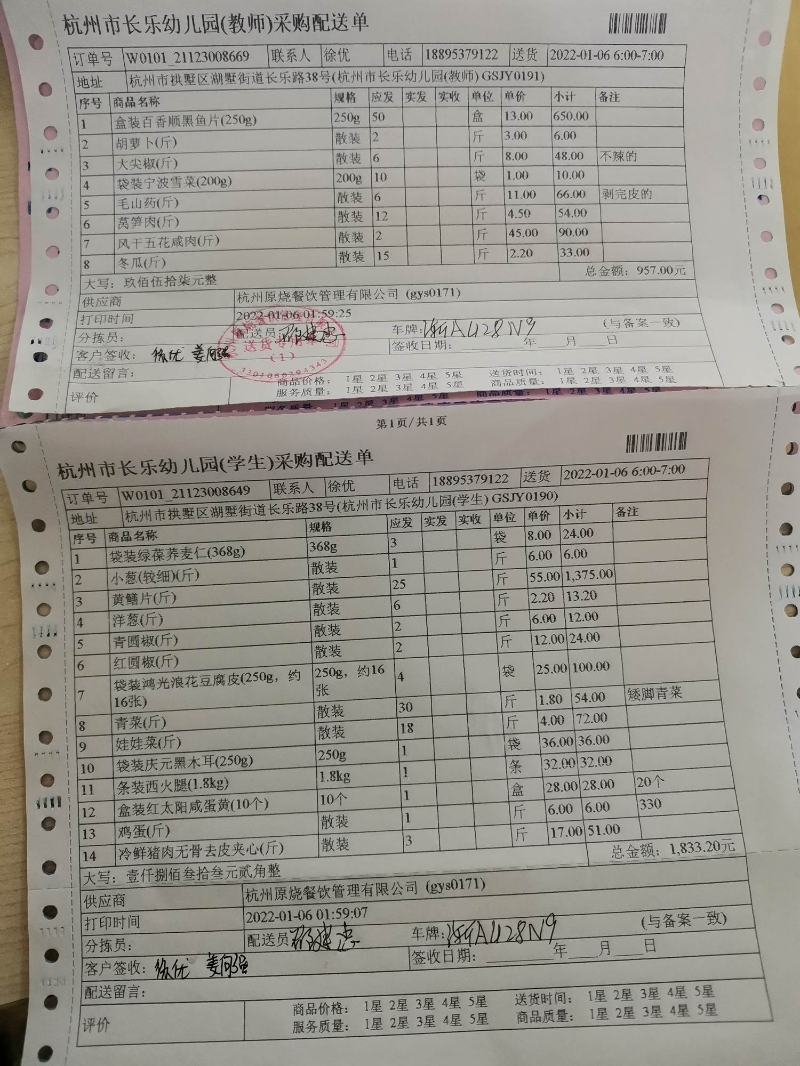 杭州市长乐幼儿园(教师)采购配送单
订单号 W0101_21123008669 联系人 徐优 电话 18895379122 送货 2022-01-06 6:00-7:00
地址 杭州市拱墅区湖墅街道长乐路38号(杭州市长乐幼儿园(教师) GSJY0191)
序号 商品名称 规格 应发 实发 实收 单位 单价 小计 备注
1 盒装百香顺黑鱼片(250g) 250g 50 盒 13.00 650.00
2 胡萝卜(斤) 散装 2 斤 3.00 6.00
3 大尖椒(斤) 散装 6 斤 8.00 48.00 不辣的
4 袋装宁波雪菜(200g) 200g 10 袋 1.00 10.00
5 毛山药(斤) 散装 6 斤 11.00 66.00 剥完皮的
6 莴笋肉(斤) 散装 12 斤 4.50 54.00
7 风干五花咸肉(斤) 散装 2 斤 45.00 90.00
8 冬瓜(斤) 散装 15 斤 2.20 33.00
大写：玖佰伍拾柒元整 总金额：957.00元
供应商 杭州原烧餐饮管理有限公司 (gys0171)
打印时间 2022-01-06 01:59:25
分拣员： 配送员 车牌：浙AU28N9 (与备案一致)
送货专用章
(1)
客户签收： 徐优 签收日期： 年 月 日
配送留言：
评价 商品价格： 1星 2星 3星 4星 5星 送货时间： 1星 2星 3星 4星 5星
服务质量： 1星 2星 3星 4星 5星 商品质量： 1星 2星 3星 4星 5星
第1页/共1页
杭州市长乐幼儿园(学生)采购配送单
订单号 W0101_21123008649 联系人 徐优 电话 18895379122 送货 2022-01-06 6:00-7:00
地址 杭州市拱墅区湖墅街道长乐路38号(杭州市长乐幼儿园(学生) GSJY0190)
序号 商品名称 规格 应发 实发 实收 单位 单价 小计 备注
1 袋装绿葆荞麦仁(368g) 368g 3 袋 8.00 24.00
2 小葱(较细)(斤) 散装 1 斤 6.00 6.00
3 黄鳝片(斤) 散装 25 斤 55.00 1,375.00
4 洋葱(斤) 散装 6 斤 2.20 13.20
5 青圆椒(斤) 散装 2 斤 6.00 12.00
6 红圆椒(斤) 散装 2 斤 12.00 24.00
7 袋装鸿光浪花豆腐皮(250g，约16张) 250g，约16张 4 袋 25.00 100.00
8 青菜(斤) 散装 30 斤 1.80 54.00 矮脚青菜
9 娃娃菜(斤) 散装 18 斤 4.00 72.00
10 袋装庆元黑木耳(250g) 250g 1 袋 36.00 36.00
11 条装西火腿(1.8kg) 1.8kg 1 条 32.00 32.00
12 盒装红太阳咸蛋黄(10个) 10个 1 盒 28.00 28.00 20个
13 鸡蛋(斤) 散装 1 斤 6.00 6.00 330
14 冷鲜猪肉无骨去皮夹心(斤) 散装 3 斤 17.00 51.00
大写：壹仟捌佰叁拾叁元贰角整 总金额：1,833.20元
供应商 杭州原烧餐饮管理有限公司 (gys0171)
打印时间 2022-01-06 01:59:07
分拣员： 配送员 车牌：浙AU28N9 (与备案一致)
客户签收： 徐优 签收日期： 年 月 日
配送留言：
评价 商品价格： 1星 2星 3星 4星 5星 送货时间： 1星 2星 3星 4星 5星
服务质量： 1星 2星 3星 4星 5星 商品质量： 1星 2星 3星 4星 5星